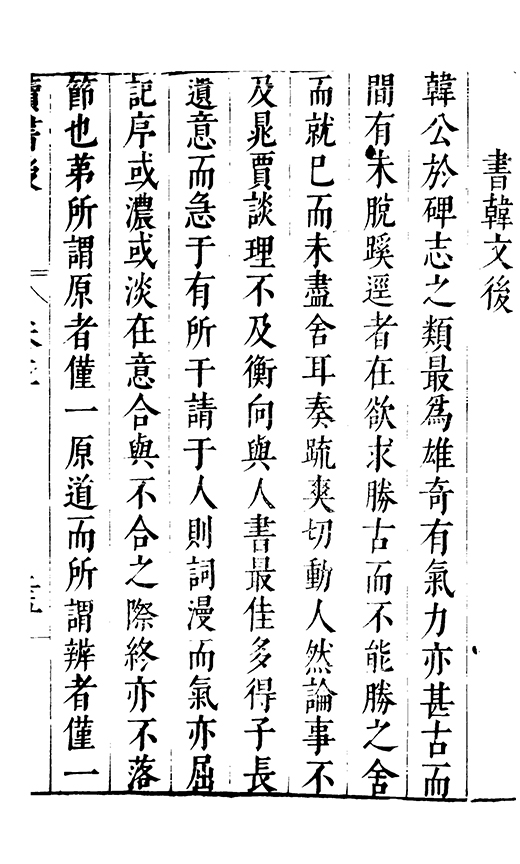 書韓文後
韓公於碑志之類最爲雄奇有氣力亦甚古而
間有未脫蹊逕者在欲求勝古而不能勝之舍
而就巳而未盡舍耳奏疏爽切動人然論事不
及鼂賈談理不及衡向與人書最佳多得子長
遺意而急于有所干請于人則詞漫而氣亦屈
記序或濃或淡在意合與不合之際終亦不落
節也苐所謂原者僅一原道而所謂辨者僅一
讀書後